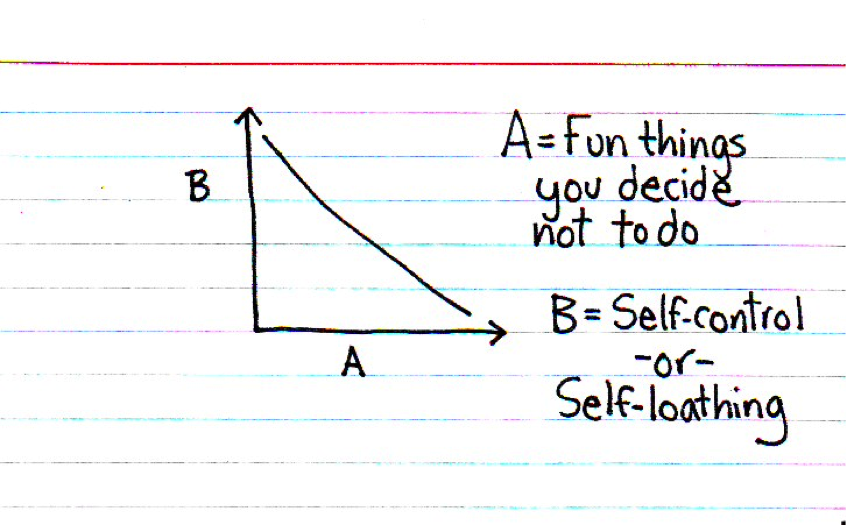 B
A
A = Fun things
you decide
not to do
B = Self-control
-or-
Self-loathing